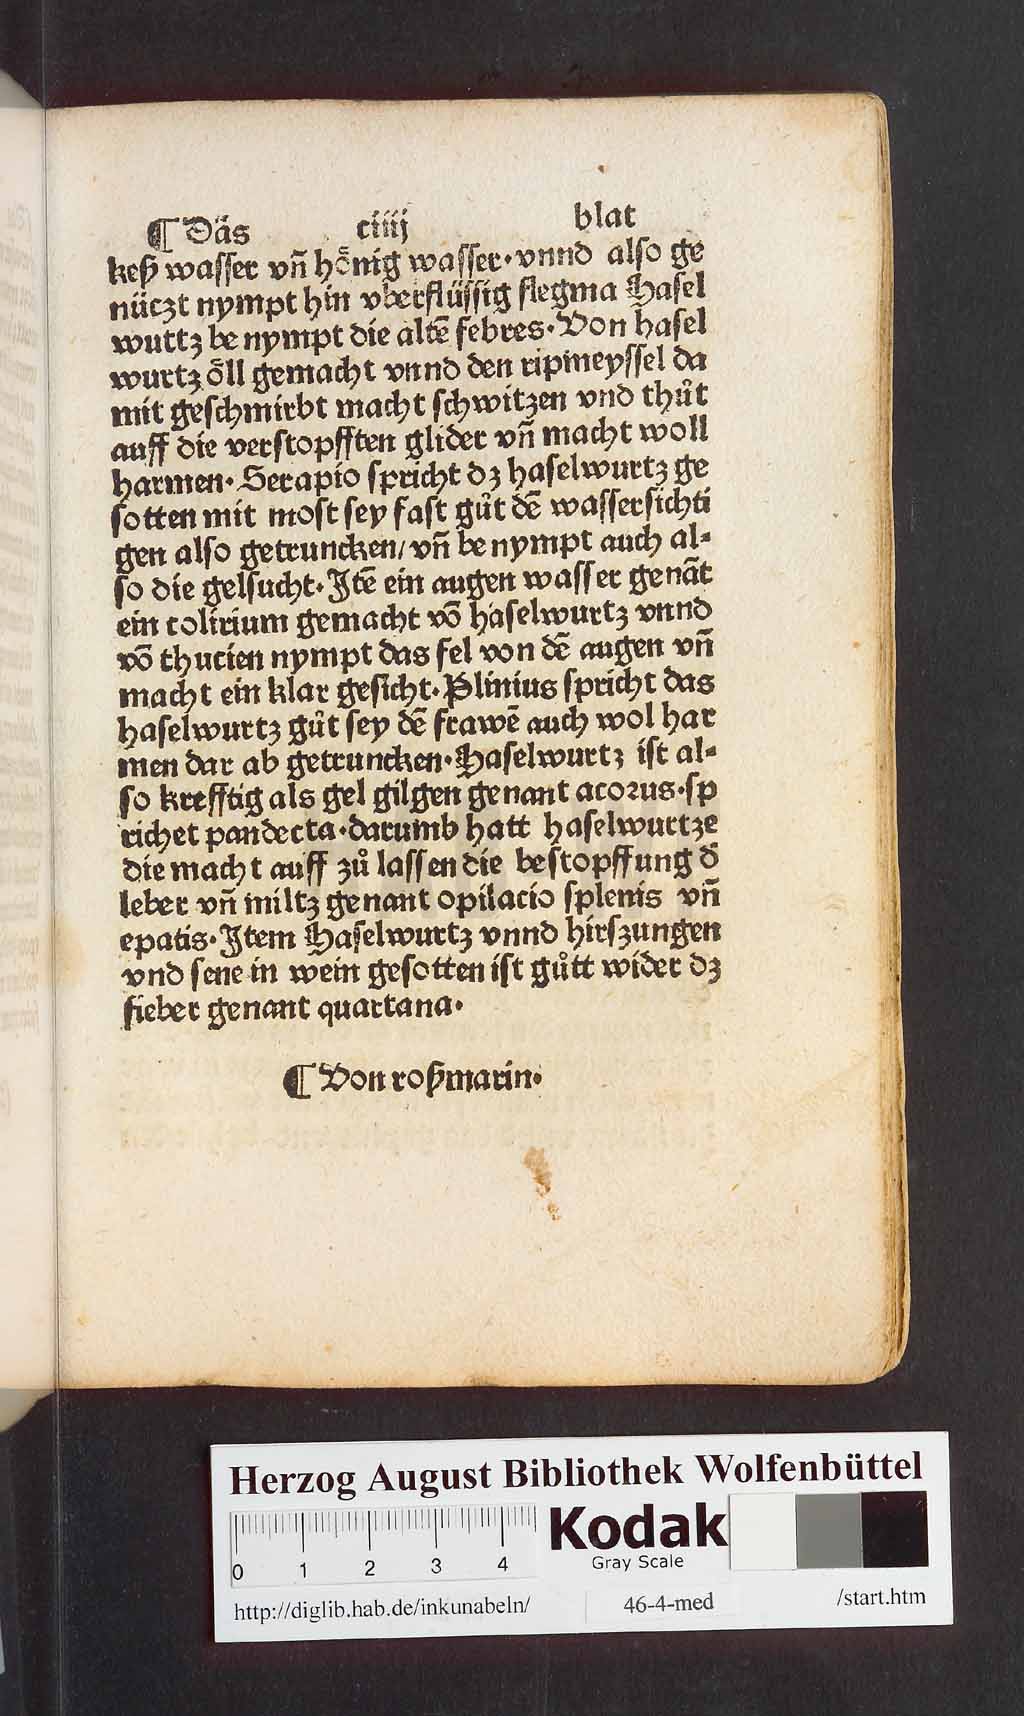 ¶ Däs ciiij blat
keß wasser vñ hoͤnig wasser·vnnd also ge
nüczt nympt hin vberflüssig flegma Hasel
wuttz be nympt die altē febres·Von hasel
wurtz oͤll gemacht vnnd den ripmeyssel da
mit geschmirbt macht schwitzen vnd thuͦt
auff die verstopfften glider vñ macht woll
harmen·Serapio spricht dz haselwurtz ge
sotten mit most sey fast guͦt dē wassersichti
gen also getruncken/vñ be nympt auch al⸗
so die gelsucht·Jtē ein augen wasser genāt
ein colirium gemacht vō haselwurtz vnnd
vō thucien nympt das fel von dē augen vñ
macht ein klar gesicht·Plinius spricht das
haselwurtz guͦt sey dē frawē auch wol har
men dar ab getruncken·Haselwurtz ist al⸗
so krefftig als gel gilgen genant acorus·sp
richet pandecta·darumb hatt haselwurtze
die macht auff zuͦ lassen die bestopffung d̄
leber vñ miltz genant opilacio splenis vñ
epatis·Jtem Haselwurtz vnnd hirszungen
vnd sene in wein gesotten ist guͦtt wider dz
fieber genant quartana·
¶ Von roßmarin·
Herzog August Bibliothek Wolfenbüttel
0 1 2 3 4
Kodak
Gray Scale
http://diglib.hab.de/inkunabeln/ 46-4-med /start.htm